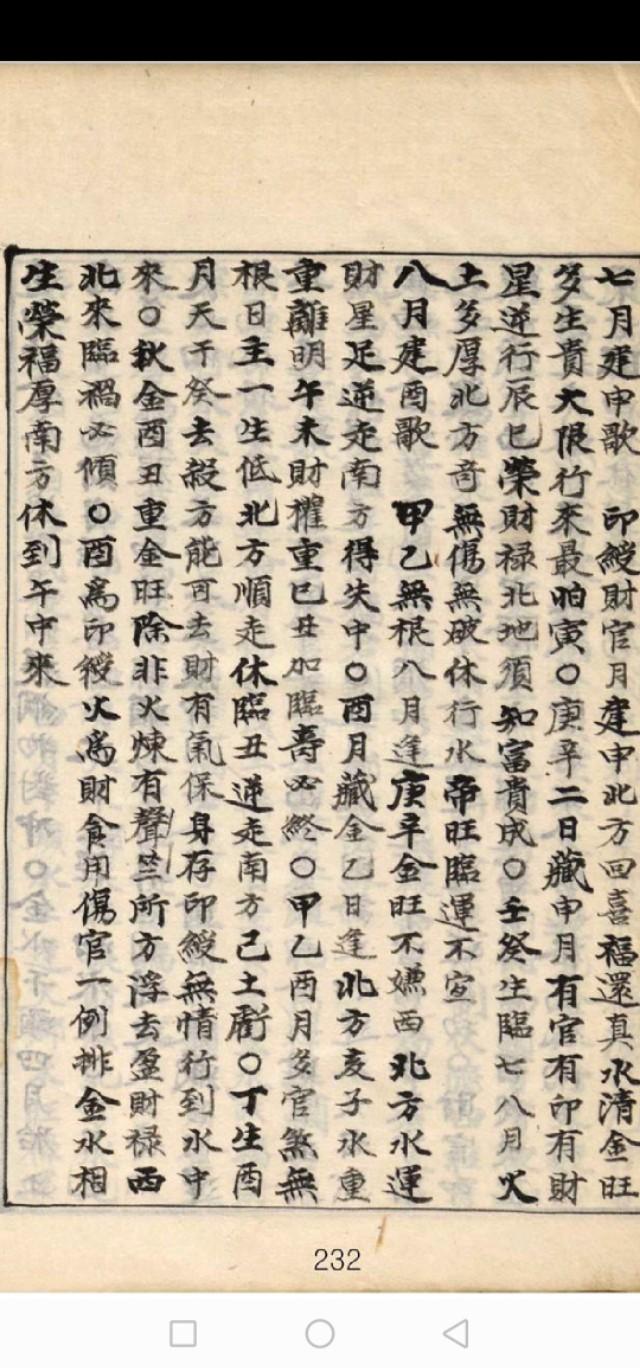 七月建申歌 印綬財官月建申北方回喜福還真水清金旺
多生貴大限行來最怕寅〇庚辛二日藏申月有官有印有財
星逆行辰巳榮財祿北地須知富貴成〇壬癸生臨七八月火
土多厚北方奇無傷無破休行水帝旺臨運不宣
八月建酉歌 甲乙無根八月逢庚辛金旺不嫌西北方水運
財星足逆走南方得失中〇酉月藏金乙日逢北方亥子水重
重離明午未財權重巳丑加臨壽必終〇甲乙酉月多官煞無
根日主一生低北方順走休臨丑逆走南方己土虧〇丁生酉
月天干癸去殺方能可去財有氣保身存印綬無情行到水中
來〇秋金酉丑重金旺除非火煉有聲竺所方浮去盈財祿西
北來臨禍必傾〇酉為印綬火為財食用傷官一例排金水相
生榮福厚南方休到午中來
232